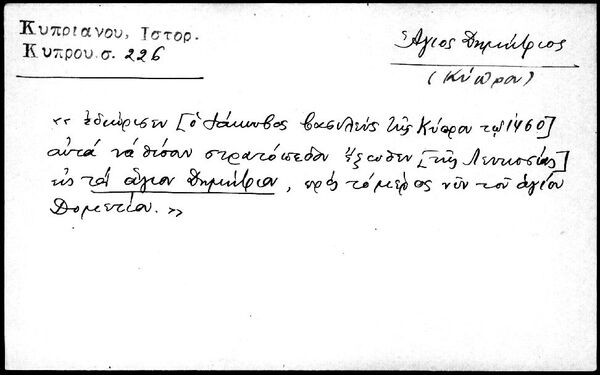 Κυπριανου, Ιστορ.
Κυπρου σ. 226
Ἅγιος Δημήτριος
(Κύπρου)
« ἐδιώρισεν [ὁ Ἰάκωβος βασιλεὺς τῆς Κύπρου τῷ 1460]
αὐτὰ νὰ θέσουν στρατόπεδον ἔξωθεν [τῆς Λευκωσίας]
εἰς τὸν ἅγιον Δημήτριον, πρὸς τὸ μέρος νῦν τοῦ ἁγίου
Δομετίου. »